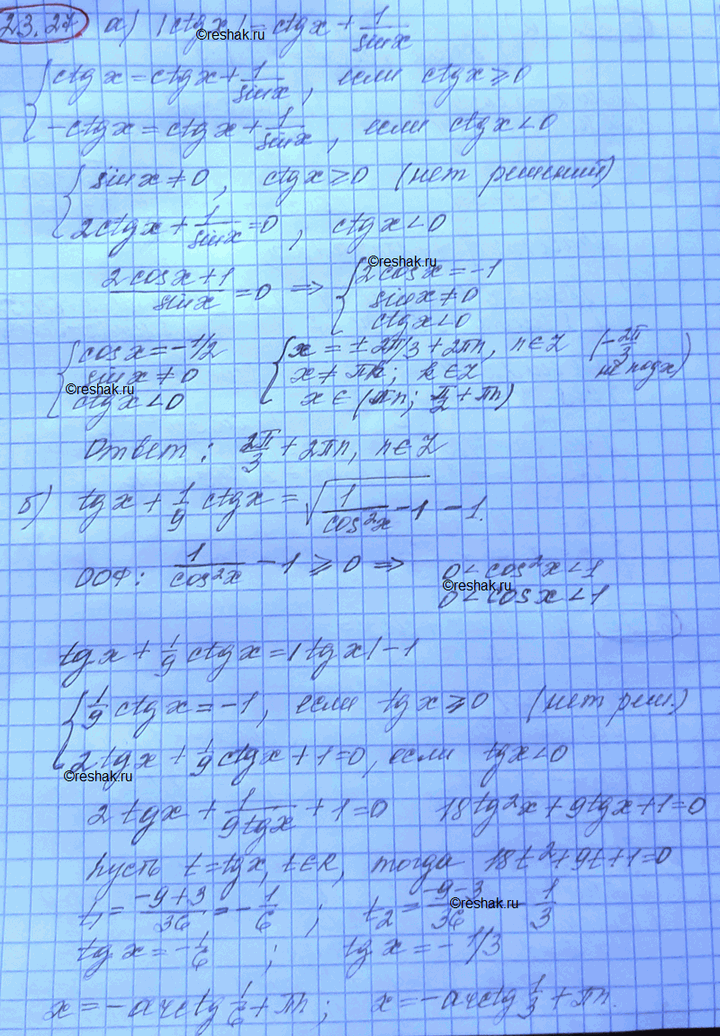 23.27 а) |ctgx| = ctgx + 1/sinx
©reshak.ru
{ ctgx = ctgx + 1/sinx, если ctgx ≥ 0
-ctgx = ctgx + 1/sinx, если ctgx < 0
{ sinx ≠ 0, ctgx ≥ 0 (нет решений)
2ctgx + 1/sinx = 0, ctgx < 0
©reshak.ru
(2cosx+1)/sinx = 0 ⇒ { 2cosx = -1
sinx ≠ 0
ctgx < 0
{ cosx = -1/2
sinx ≠ 0
ctgx < 0
©reshak.ru
{ x = ±2π/3 + 2πn, n∈Z (-2π/3
x ≠ πk; k∈Z не подх)
x ∈ (πn; π/2 + πn)
Ответ: 2π/3 + 2πn, n∈Z
б) tgx + 1/9 ctgx = √(1/cos²x - 1) - 1.
ООФ: 1/cos²x - 1 ≥ 0 ⇒ 0 < cos²x < 1
©reshak.ru
0 < cosx < 1
tgx + 1/9 ctgx = |tgx| - 1
{ 1/9 ctgx = -1, если tgx ≥ 0 (нет реш.)
2tgx + 1/9 ctgx + 1 = 0, если tgx < 0
©reshak.ru
2tgx + 1/(9tgx) + 1 = 0 18tg²x + 9tgx + 1 = 0
Пусть t = tgx, t∈R, тогда 18t² + 9t + 1 = 0
t₁ = (-9+3)/36 = -1/6 ; t₂ = (-9-3)/36 - 1/3
©reshak.ru
tgx = -1/6 ; tgx = -1/3
x = -arctg 1/6 + πn; x = -arctg 1/3 + πn.